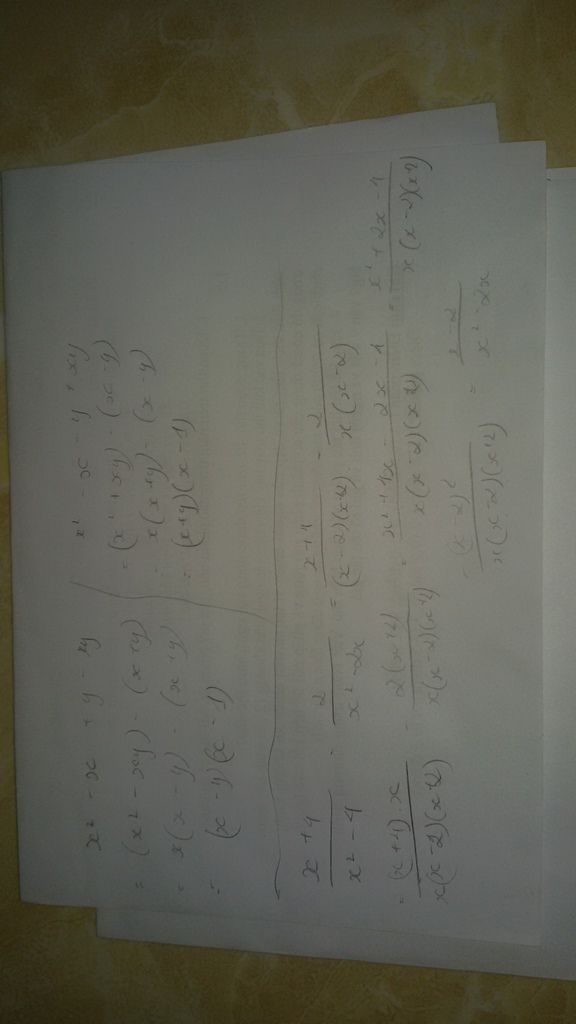 x² - x + y - xy
= (x² - xy) - (x + y)
= x(x - y) - (x + y)
= (x - y)(x - 1)
x² - x - y + xy
= (x² + xy) - (x - y)
= x(x + y) - (x - y)
= (x + y)(x - 1)
(x + 4)/(x² - 4) - 2/(x² - 2x) = (x + 4)/((x - 2)(x + 2)) - 2/(x(x - 2))
= ((x + 4).x)/(x(x - 2)(x + 2)) - (2(x + 2))/(x(x - 2)(x + 2)) = (x² + 4x - 2x - 4)/(x(x - 2)(x + 2)) = (x² + 2x - 4)/(x(x - 2)(x + 2))
= (x - 2)²/(x(x - 2)(x + 2)) = (x - 2)/(x² - 2x)